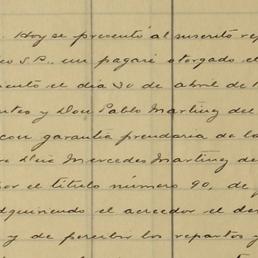 . Hoy se presentó al suscrito re
o S.P., un pagaré otorgado el
ento el día 30 de abril de 1
tes y Don Pablo Martínez del
con garantía prendaria de la
Doña Mercedes Martínez de
or el título número 90, de
dquiriendo el acreedor el der
y de percibir los repartos y